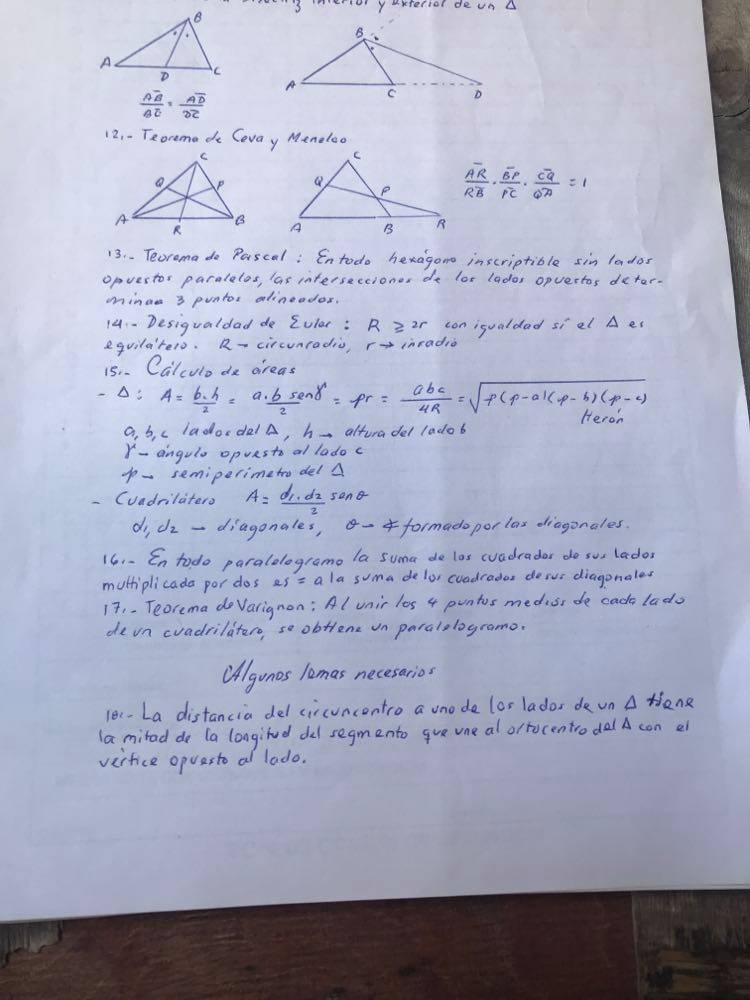 Bisectriz interior y exterior de un Δ
B
A D C
B
A C D
AB̅/BC̅ = AD̅/DC̅
12.- Teorema de Ceva y Menelao
C
Q P
A R B
C
Q P
A B R
AR̅/RB̅ · BP̅/PC̅ · CQ̅/QA̅ = 1
13.- Teorema de Pascal : En todo hexágono inscriptible sin lados
opuestos paralelos, las intersecciones de los lados opuestos deter-
minan 3 puntos alineados.
14.- Desigualdad de Euler : R ≥ 2r con igualdad sí el Δ es
equilátero. R → circunradio, r → inradio
15.- Cálculo de áreas
- Δ: A = b.h/2 = a.b senγ/2 = pr = abc/4R = √p(p-a)(p-b)(p-c)
Herón
a, b, c lados del Δ, h → altura del lado b
γ → ángulo opuesto al lado c
p → semiperímetro del Δ
- Cuadrilátero A = d1.d2/2 senθ
d1, d2 → diagonales, θ → ∢ formado por las diagonales.
16.- En todo paralelogramo la suma de los cuadrados de sus lados
multiplicada por dos es = a la suma de los cuadrados de sus diagonales
17.- Teorema de Varignon : Al unir los 4 puntos medios de cada lado
de un cuadrilátero, se obtiene un paralelogramo.
Algunos lemas necesarios
18.- La distancia del circuncentro a uno de los lados de un Δ tiene
la mitad de la longitud del segmento que une al ortocentro del Δ con el
vértice opuesto al lado.